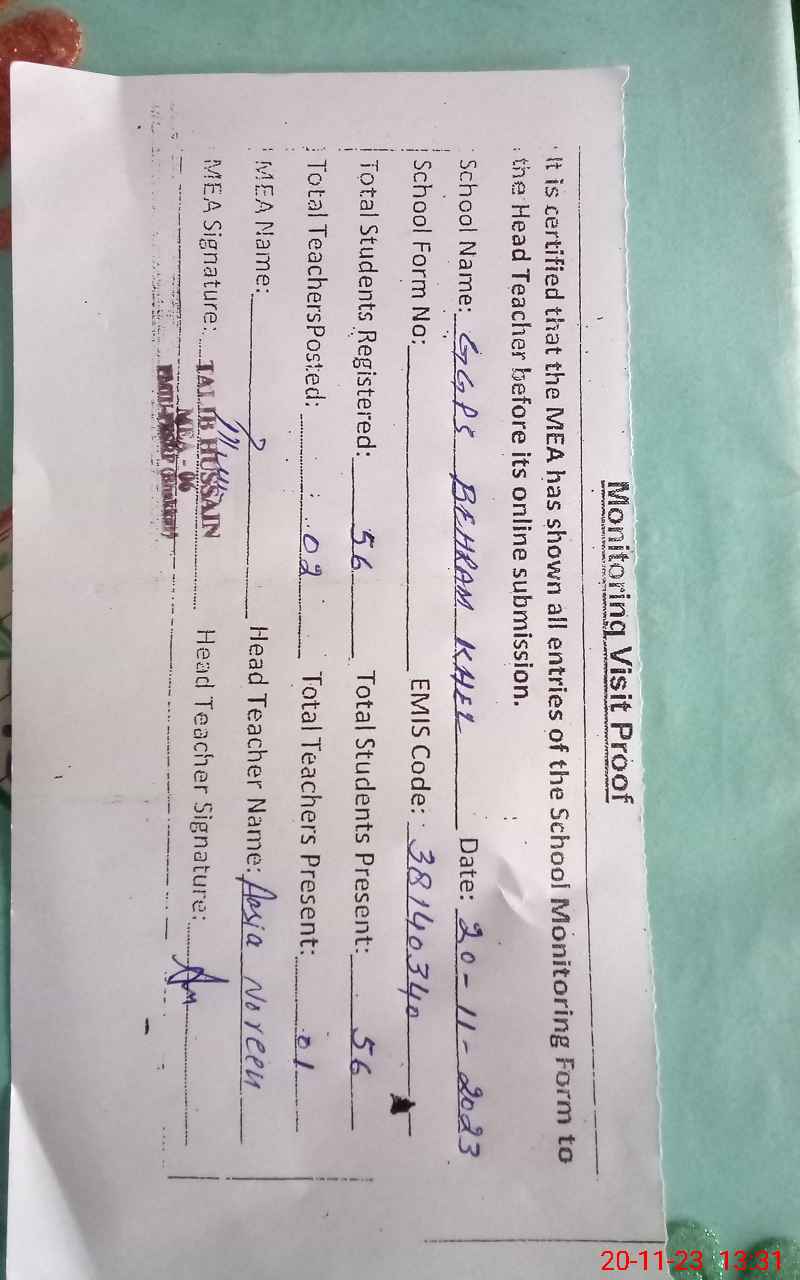 Monitoring Visit Proof
It is certified that the MEA has shown all entries of the School Monitoring Form to
the Head Teacher before its online submission.
School Name: GGPS BEHRAM KHEL Date: 20-11-2023
School Form No: EMIS Code: 38140340
Total Students Registered: 56 Total Students Present: 56
Total TeachersPosted: 02 Total Teachers Present: 01
MEA Name: Head Teacher Name: Aasia Noreen
MEA Signature: TALIB HUSSAIN Head Teacher Signature:
MEA - 06
(Bhakkar)
20-11-23 13:31